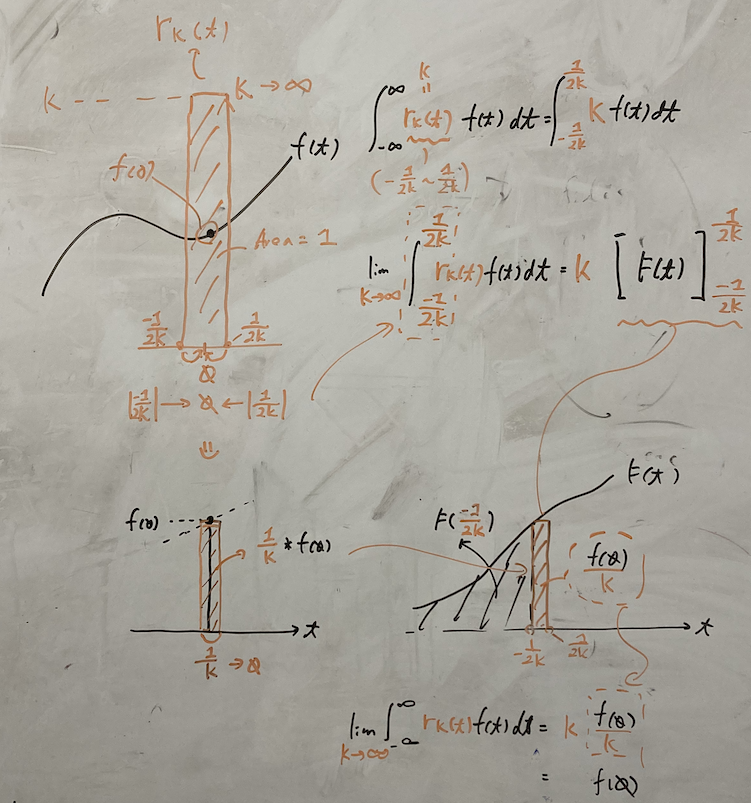 r_k(t)
k
k → ∞
f(t)
f(0)
Area = 1
-1/2k
1/2k
0
|-1/2k| → 0 ← |1/2k|
k
=
∫_{-∞}^{∞} r_k(t) f(t) dt = ∫_{-1/2k}^{1/2k} k f(t) dt
(-1/2k ~ 1/2k)
lim_{k→∞} ∫_{-1/2k}^{1/2k} r_k(t) f(t) dt = k [F(t)]_{-1/2k}^{1/2k}
f(0)
1/k * f(0)
t
1/k → 0
F(t)
F(-1/2k)
f(0)/k
t
-1/2k
1/2k
lim_{k→∞} ∫_{-∞}^{∞} r_k(t) f(t) dt = k f(0)/k
= f(0)